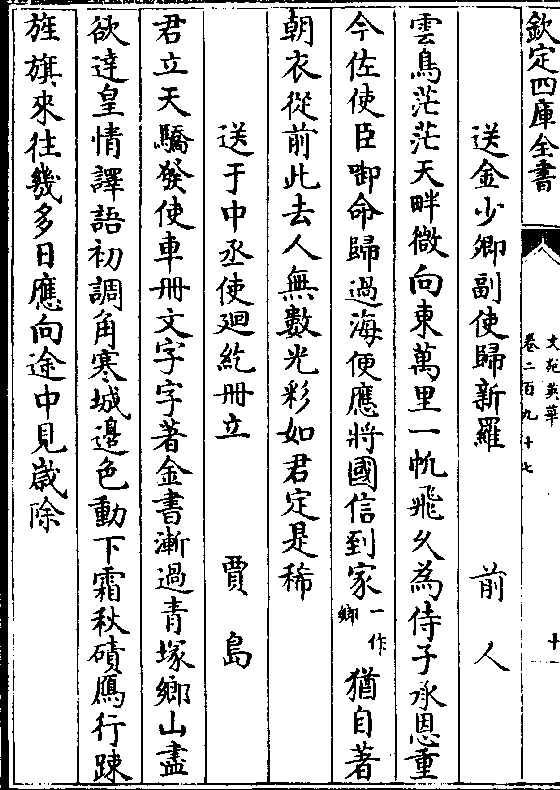 欽定四庫全書
文苑英華
卷二百九十七
十一
送金少卿副使歸新羅　前人
雲島茫茫天畔微向東萬里一帆飛久為侍子承恩重
今佐使臣啣命歸過海便應將國信到家一作鄉猶自著
朝衣從前此去人無數光彩如君定是稀
送于中丞使廻紇冊立　賈島
君立天驕發使車冊文字字著金書漸過青塚鄉山盡
欲達皇情譯語初調角寒城邊色動下霜秋磧鴈行踈
旌旗來往幾多日應向途中見歲除